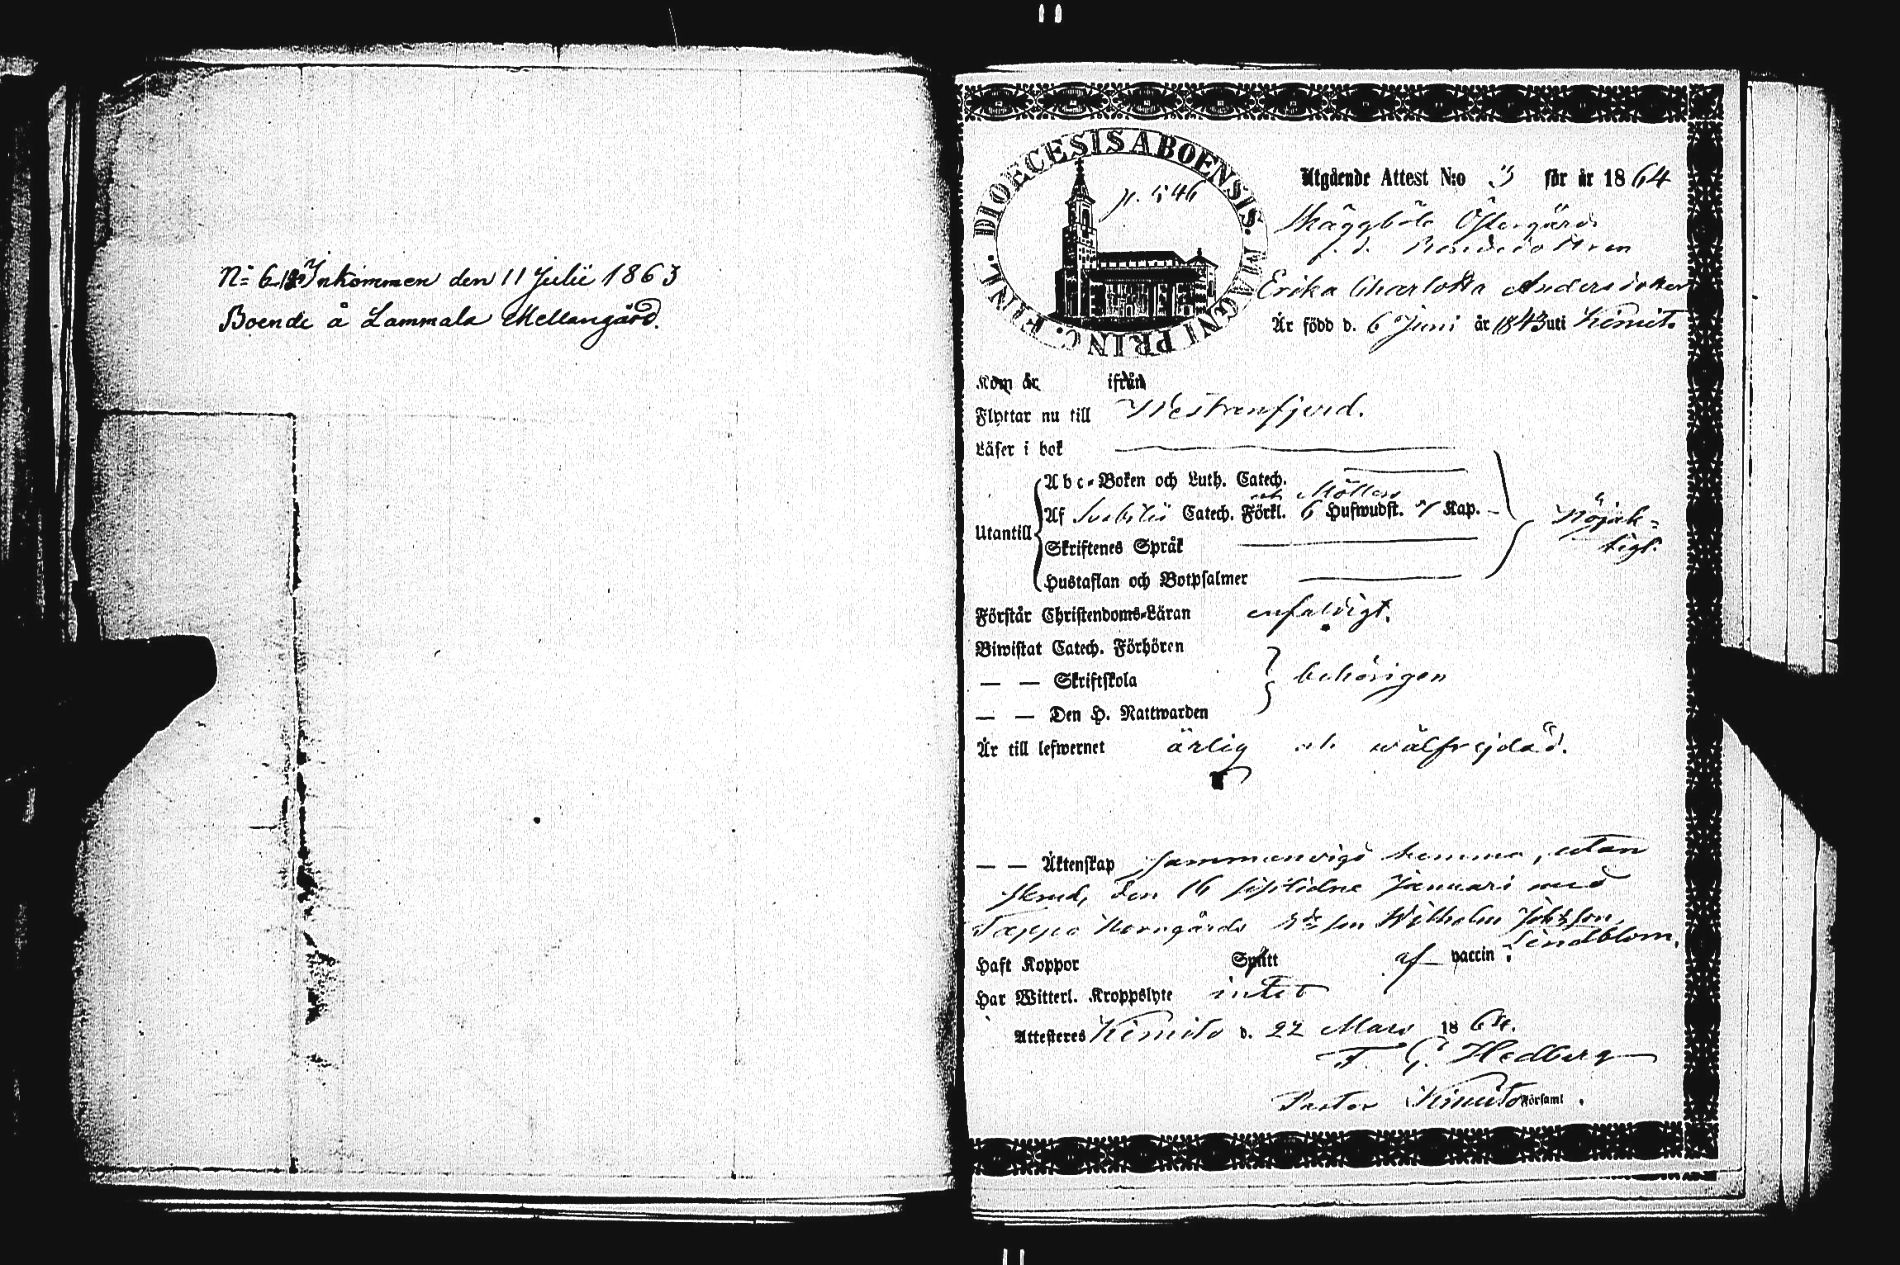 N:o 6 Inkommen den 11 Julii 1863
Boende å Lammala Mellangård.
DIOECESIS ABOENSIS. MAGNI PRINC. FINL.
p. 546
Utgående Attest N:o 3 för år 1864
Skäggböle Östergårds
f. d.
Erika Charlotta Andersdotter
Är född d. 6 Juni år 1843 uti Kimito
Kom år ifrån
Flyttar nu till Westanfjerd.
Läser i bok
Abc-Boken och Luth. Catech.
och Möllers
Utantill
Af Svebilii Catech. Förkl. 6 Hufwudst. Kap.
Nöjak-
tigt.
Skriftenes Språk
Hustaflan och Botpsalmer
Förstår Christendoms-Läran enfaldigt.
Biwistat Catech. Förhören
— — Skriftskola behörigen
— — Den H. Nattwarden
Är till lefwernet ärlig och wälfrejdad.
— — Äktenskap Sammanvigd hemma, utan
skrud, den 16 sistlidne Januari med
Wilhelm
Lindblom.
Haft Koppor Smitt af vaccin
Har Witterl. Kroppslyte intet
Attesteres Kimito d. 22 Mars 1864.
F. G. Hedberg
Pastor Kimito Församl.